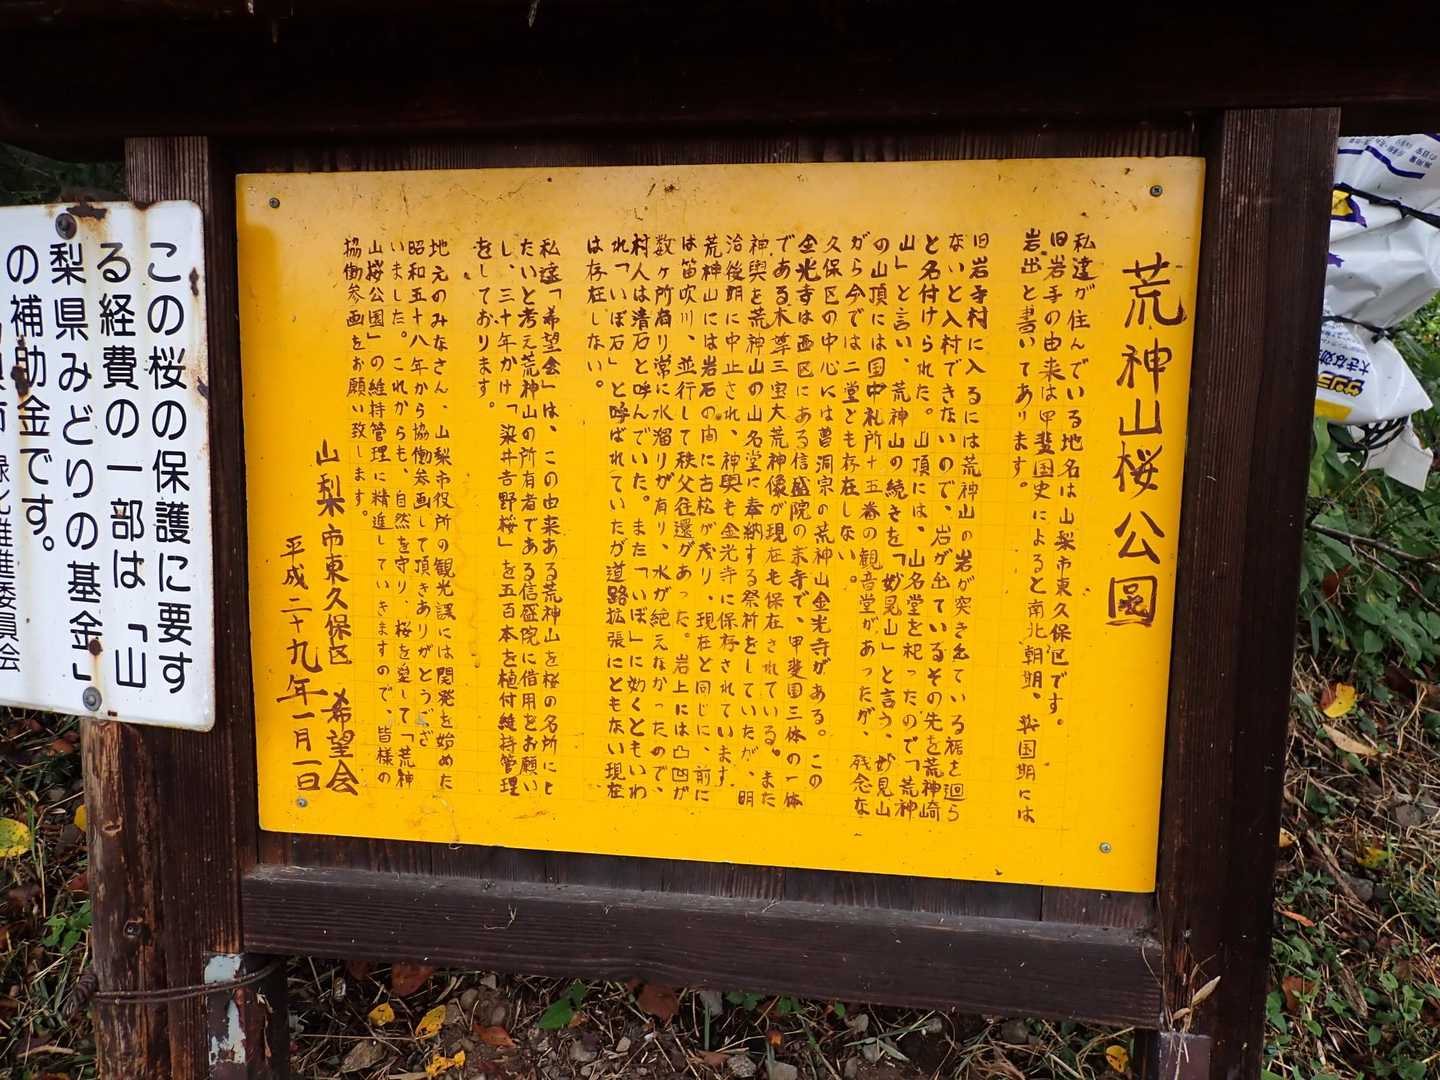 荒神山桜公園
私達が住んでいる地名は山梨市東久保区です。
旧岩手の由来は甲斐国史によると南北朝期、戦国期には
岩出と書いてあります。
旧岩手村に入るには荒神山の岩が突き出ている裾を廻ら
ないと入村できないので、岩が出ているその先を荒神崎
と名付けられた。山頂には、山名堂を祀ったので「荒神
山」と言い、荒神山の続きを「妙見山」と言う、妙見山
の山頂には国中札所十五番の観音堂があったが、残念な
がら今では二堂とも存在しない。
久保区の中心には曹洞宗の荒神山金光寺がある。この
金光寺は西区にある信盛院の末寺で、甲斐国三体の一体
である本尊三宝大荒神像が現在も保存されている。また
神輿を荒神山の山名堂に奉納する祭祈をしていたが、明
治後期に中止され、神輿も金光寺に保存されています。
荒神山には岩石の間に古松が茂り、現在と同じに、前に
は笛吹川、並行して秩父往還があった。岩上には凸凹が
数ヶ所有り常に水溜りが有り、水が絶えなかったので、
村人は清石と呼んでいた。また「いぼ」に効くともいわ
れ「いぼ石」と呼ばれていたが道路拡張にともない現在
は存在しない。
私達「希望会」は、この由来ある荒神山を桜の名所にし
たいと考え荒神山の所有者である信盛院に借用をお願い
し、三十年かけ「染井吉野桜」を五百本を植付維持管理
をしております。
地元のみなさん、山梨市役所の観光課には開発を始めた
昭和五十八年から協働参画して頂きありがとうござ
いました。これからも、自然を守り、桜を愛して「荒神
山桜公園」の維持管理に精進していきますので、皆様の
協働参画をお願い致します。
山梨市東久保区 希望会
平成二十九年一月一日
この桜の保護に要す
る経費の一部は「山
梨県みどりの基金」
の補助金です。
緑化推進委員会